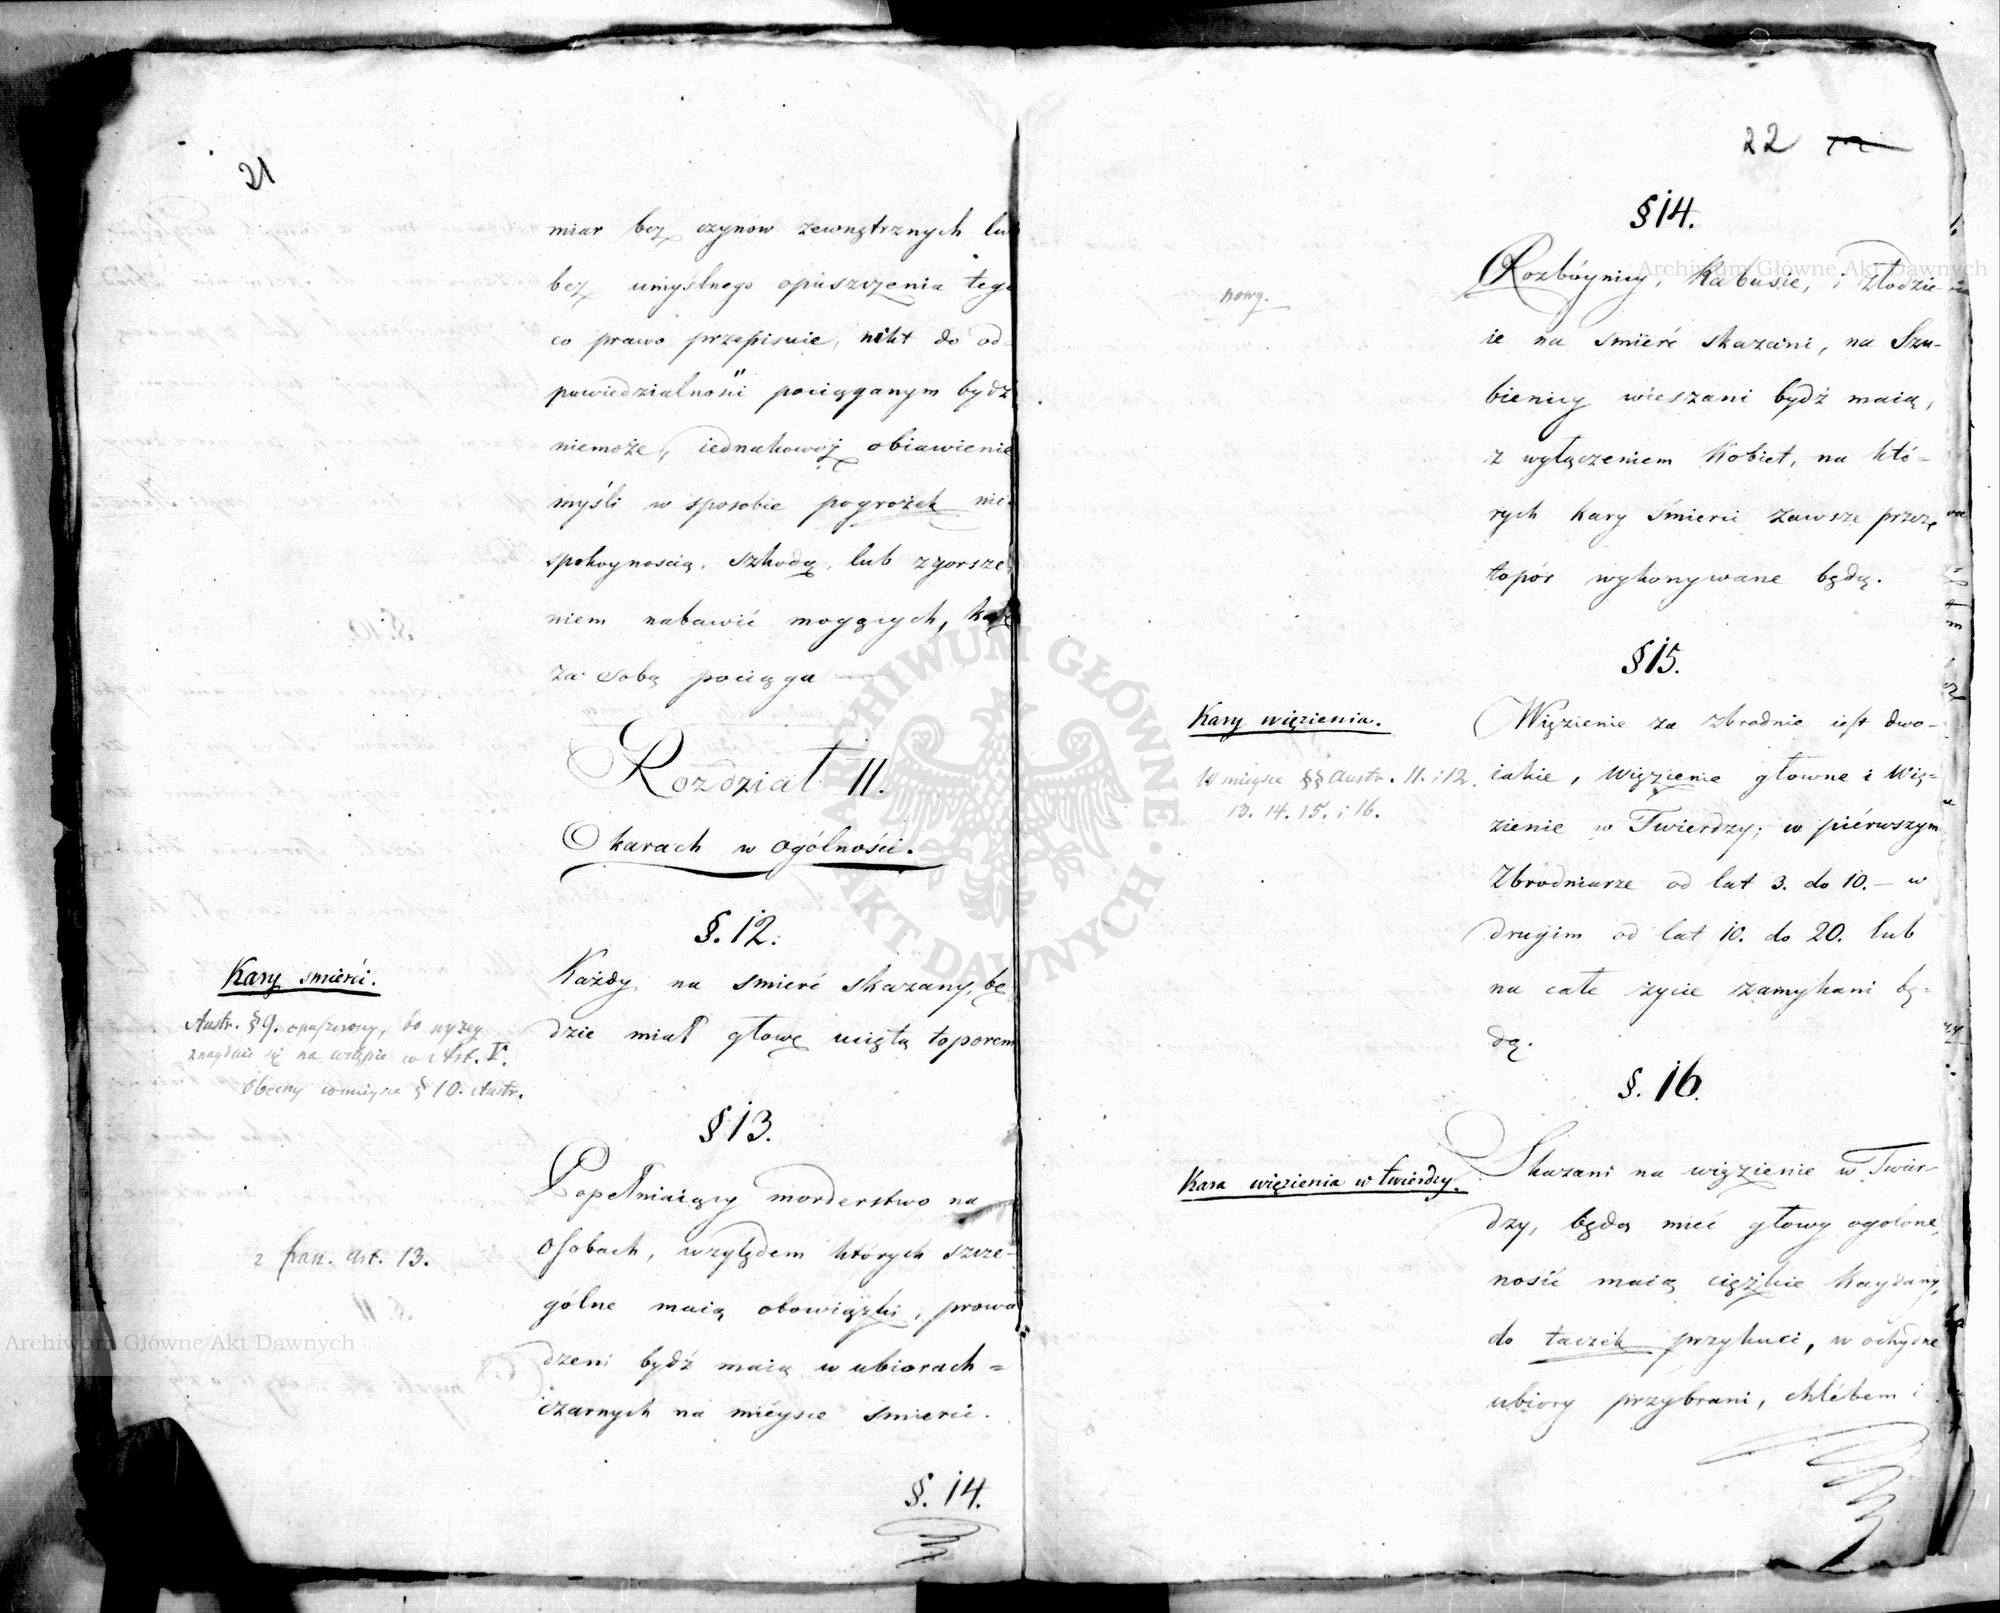 21
miar bez czynów zewnętrznych lub
bez umyślnego opuszczenia tego
co prawo przepisuie, nikt do od-
powiedzialności pociąganym bydź
niemoże, iednakowoż obiawienie
myśli w sposobie pogrożek nie-
spokoynością, szkodą, lub zgorsze-
niem nabawić mogących, karę
za sobą pociąga
Rozdział II.
O karach w ogólności.
§. 12.
Kary smierci.
Każdy na smierć skazany, bę
dzie miał głowę uciętą toporem
Austr. §9. opuszczony, bo wyżey
znayduie się na wstępie w Art. V.
Obecny wmieysce §10. Austr.
§ 13.
Popełniaiący morderstwo na
osobach, względem których szcze-
gólne maią obowiązki, prowa
dzeni bydź maią w ubiorach =
czarnych na mieysce śmierci.
z fran. art. 13.
§. 14.
22
§ 14.
nowy.
Rozbóynicy, Rabusie, i złodzie-
ie na smierć skazani, na Szu-
bienicy wieszani bydź maią,
z wyłączeniem Kobiet, na któ-
rych kary śmierci zawsze przez
topór wykonywane będą.
§ 15.
Kary więzienia.
W mieysce §§ Austr. 11. i 12.
13. 14. 15. i 16.
Więzienie za zbrodnie iest dwo-
iakie, Więzienie głowne i Wię=
zienie w Twierdzy; w piérwszym
Zbrodniarze od lat 3. do 10. – w
drugim od lat 10. do 20. lub
na całe życie zamykani bę=
dą.
§. 16.
Kara więzienia w twierdzy.
Skazani na więzienie w Twier-
dzy, będą mieć głowy ogolone,
nosić maią ciężkie Kaydany,
do taczek przykuci, w ochydne
ubiory przybrani, chlébem i
Archiwum Główne Akt Dawnych
Archiwum Główne Akt Dawnych
ARCHIWUM GŁÓWNE AKT DAWNYCH